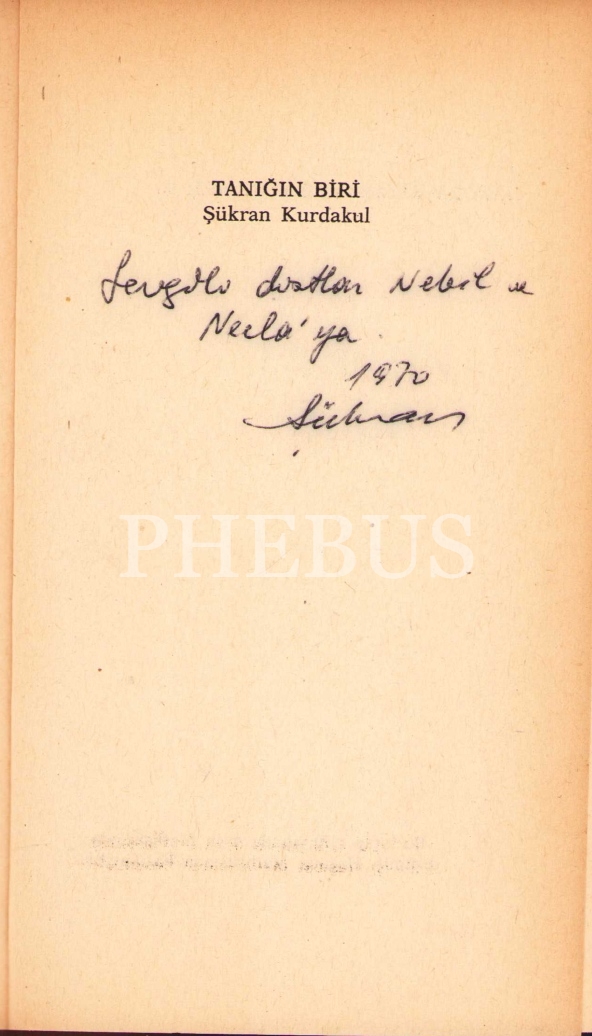 TANIĞIN BİRİ
Şükran Kurdakul
Sevgili dostlar Nebil ve
Necla'ya
1970
Şükran
PHEBUS